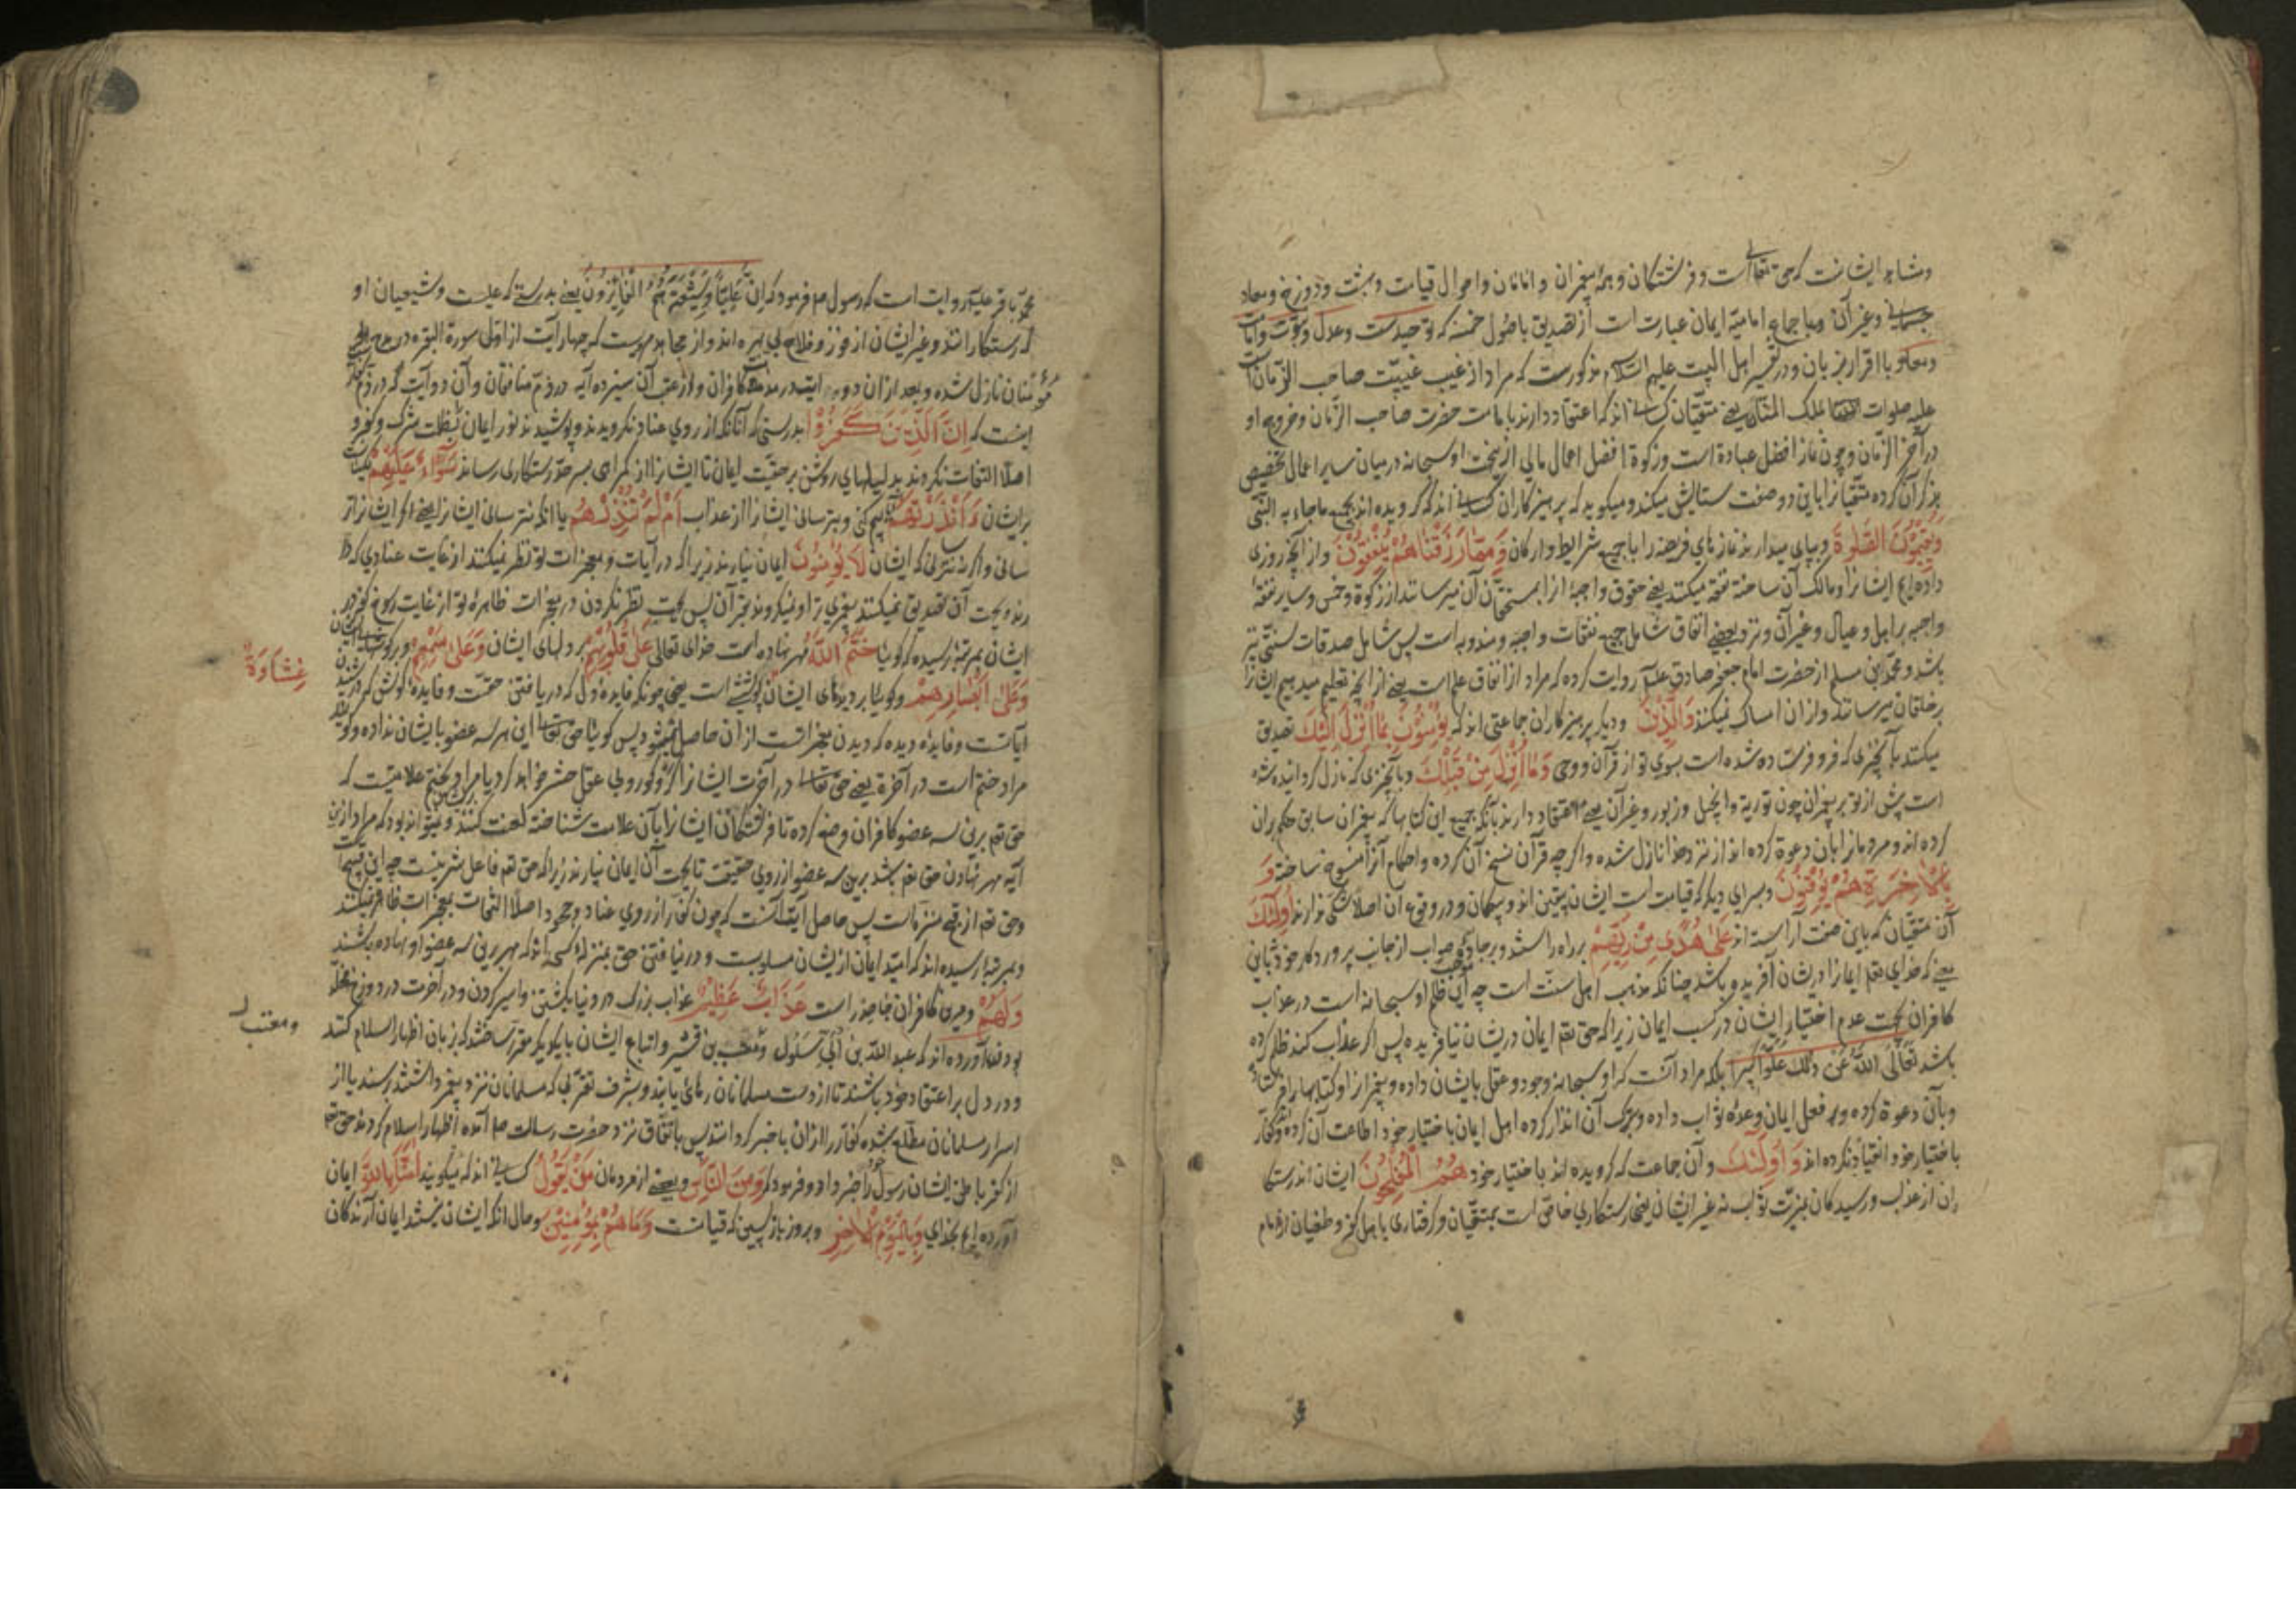 و مشاهد ایشانست که حق تعالی است و فرشتکان و همه پیغمبران و امامان و احوال قیامت و بهشت و دوزخ و معاد
جسمانی و غیر آن و باجماع امامیه ایمان عبارت است از تصدیق باصول خمسه که توحیدست و عدل و نبوت و امامت
و معاد با اقرار بزبان و در تفسیر اهل البیت علیهم السلام مذکورست که مراد از غیب غیبت صاحب الزمان است
علیه صلوات الملک المنان یعنی متقیان کسانی اند که اعتقاد دارند بامامت حضرت صاحب الزمان و خروج او
در آخر الزمان و چون نماز افضل عبادة است و زکوة افضل اعمال مالی ازینجهت او سبحانه در میان سایر اعمال تخصیص
بذکر آن کرده متقیانرا باین دو صفت ستایش میکند و میکوید که پرهیزکاران کسانی اند که کرویده اند بجمیع ما جاء به النبی
وَیُقِیمُونَ الصَّلوةَ و بپای میدارند نماز های فریضه را با جمیع شرایط و ارکان وَمِمَّا رَزَقْنَاهُمْ یُنْفِقُونَ و از آنچه روزی
داده ایم ایشانرا و مالک آن ساخته نفقه میکنند یعنی حقوق واجبه را بمستحقان آن میرسانند از زکوة و خمس و سایر نفقهٔ
واجبه بر اهل و عیال و غیر آن و نزد بعضی انفاق شامل جمیع نفقات واجبه و مندوبه است پس شامل صدقات سنتی نیز
باشد و محمد بن مسلم از حضرت امام جعفر صادق علیه روایت کرده که مراد از انفاق علم است یعنی از آنچه تعلیم میدهیم ایشانرا
بر خلقان میرسانند و از ان امساک نمیکنند وَالَّذِینَ و دیکر پرهیزکاران جماعتی اند که یُؤْمِنُونَ بِمَا اُنْزِلَ اِلَیْكَ تصدیق
میکنند بآنچیزی که فرو فرستاده شده است بسوی تو از قرآن و وحی وَمَا اُنْزِلَ مِنْ قَبْلِكَ و بآنچیزی که نازل کردانیده شده
است پیش از تو بر پیغمبران چون توریة و انجیل و زبور و غیر آن یعنی اعتقاد دارند بآنکه جمیع این کتابها که پیغمبران سابق حکم بران
کرده اند و مردمانرا بان دعوة کرده اند از نزد خدا نازل شده و اکر چه قرآن نسخ آن کرده و احکام آنرا منسوخ ساخته وَ
بِالْاٰخِرَةِ هُمْ یُوقِنُونَ و بسرای دیکر که قیامت است ایشان بیقین اند و بیکمان و در وقوع آن اصلا شکی ندارند اُولٰئِكَ
آن متقیان که باین صفت آراسته اند عَلٰی هُدًی مِنْ رَبِّهِمْ بر راه راستند و بر جادهٔ صواب از جانب پروردکار خود نه باین
معنی که خدای تعالی ایمانرا در یشان آفریده باشد چنانکه مذهب اهل سنت است چه این موجب ظلم او سبحانه است در عذاب
کافران بجهت عدم اختیار ایشان در کسب ایمان زیرا که حق تعم ایمان در یشان نیافریده پس اکر عذاب کند ظلم کرده
باشد تَعَالَی اللّٰهُ عَنْ ذٰلِكَ عُلُوًّا کَبِیرًا بلکه مراد آنست که او سبحانه وجود و عقل بایشان داده و پیغمبر انرا و کتابها را فرستاده
و بآن دعوة کرده و بر فعل ایمان وعدهٔ ثواب داده و بترک آن انذار کرده اهل ایمان باختیار خود اطاعت آن کرده اند و کفار
باختیار خود انقیاد نکرده اند وَ اُولٰئِكَ و آن جماعت که کرویده اند باختیار خود هُمُ الْمُفْلِحُونَ ایشان اند رستکا
ران از عذاب و رسیدکان بمزیت ثواب نه غیر ایشان یعنی رستکاری خاص است بمتقیان و کرفتاری باهل کفر و طغیان از امام
محمد باقر علیه روایت است که رسول ص فرمود که اِنَّ عَلِیًّا وَشِیعَتَهُ هُمُ الْفَائِزُونَ یعنی بدرستی که علیست و شیعیان او
که رستکارانند و غیر ایشان از فوز و فلاح بی بهره اند و از مجاهد مرویست که چهار آیت از اول سورة البقره در مدح
مؤمنان نازل شده و بعد از ان دو آیت در مذمت کافران و از عقب آن سیزده آیه در ذم منافقان و آن دو آیت که در ذم
اینست که اِنَّ الَّذِینَ كَفَرُوا بدرستی که آنانکه از روی عناد نکرویدند و پوشیدند نور ایمان بظلمت شرک و کفر و
اصلا التفات نکردند بدلیلهای روشن بر حقیت ایمان تا ایشانرا از کمراهی بسر حد رستکاری رساند سَوَاءٌ عَلَیْهِمْ یکسانست
بر ایشان ءَاَنْذَرْتَهُمْ آنکه بیم کنی و بترسانی ایشانرا از عذاب اَمْ لَمْ تُنْذِرْهُمْ یا آنکه نترسانی ایشانرا یعنی اکر ایشانرا تر
سانی و اکر نه نترسانی که ایشان لَا یُؤْمِنُونَ ایمان نیارند زیرا که در آیات و معجزات تو نظر نمیکنند از غایت عنادی که دا
رند و بجهت آن تصدیق نمیکنند پیغمبری ترا و نمیکروند بقرآن پس بجهت نظر نکردن در معجزات ظاهرهٔ تو از غایت رسوخ کفر در
ایشان بمرتبهٔ رسیده که کویا خَتَمَ اللّٰهُ مهر نهاده است خدای تعالی عَلٰی قُلُوبِهِمْ بر دلهای ایشان وَعَلٰی سَمْعِهِمْ و بر کوشهای ایشان
وَعَلٰی اَبْصَارِهِمْ و کویا بر دیدهای ایشان پوششی است یعنی چونکه فایدهٔ دل که دریافتن حقست و فایدهٔ کوش که شنیدن
غِشَاوَةٌ
آیاتست و فایدهٔ دیده که دیدن معجزاتست از ان حاصل نمیشود پس کوییا حق تعالی این هر سه عضو بایشان نداده و کویند
مراد ختم است در آخرة یعنی حق تعالی در آخرت ایشانرا کر و کور و بی عقل حشر خواهد کرد یا مراد بختم علامتیست که
حق تعم برین سه عضو کافران وضع کرده تا فرشتکان ایشانرا بآن علامت شناخته لعنت کنند و نتواند بود که مراد ازین
آیه مهر نهادن حق تعم باشد برین سه عضو از روی حقیقت تا بجهت آن ایمان نیارند زیرا که حق تعم فاعل شر نیست چه این قبیح است
و حق تعم از قبح منزه است پس حاصل آیت آنست که چون کفار از روی عناد و جحود اصلا التفات بمعجزات ظاهر نمیکنند
و بمرتبهٔ رسیده اند که امید ایمان از یشان مسلوبست و در نیافتن حق بمنزلهٔ کسی اند که مهر برین سه عضو او نهاده باشند
وَلَهُمْ و مرین کافران خاصه راست عَذَابٌ عَظِیمٌ عذاب بزرک در دنیا بکشتن و اسیر کردن و در آخرت در دوزخ مخلد
بودن آورده اند که عبد الله بن اُبَیّ سَلُول و معتب بن قشیر و اتباع ایشان با یکدیکر مقرر ساختند که بزبان اظهار اسلام کنند
و معتب
و در دل بر اعتقاد خود باشند تا از دست مسلمانان رهائی یابند و بشرف تقربی که مسلمانان نزد پیغمبر داشتند رسند یا از
اسرار مسلمانان مطلع شده کفار را از ان با خبر کردانند پس باتفاق نزد حضرت رسالت ص آمده اظهار اسلام کردند حق تعم
از کفر باطن ایشان رسول را خبر داد و فرمود که وَمِنَ النَّاسِ و بعضی از مردمان مَنْ یَقُولُ کسانی اند که میکویند اٰمَنَّا بِاللّٰهِ ایمان
آورده ایم بخدای وَبِالْیَوْمِ الْاٰخِرِ و بروز باز پسین که قیامتست وَمَا هُمْ بِمُؤْمِنِینَ و حال آنکه ایشان نیستند ایمان آرندکان